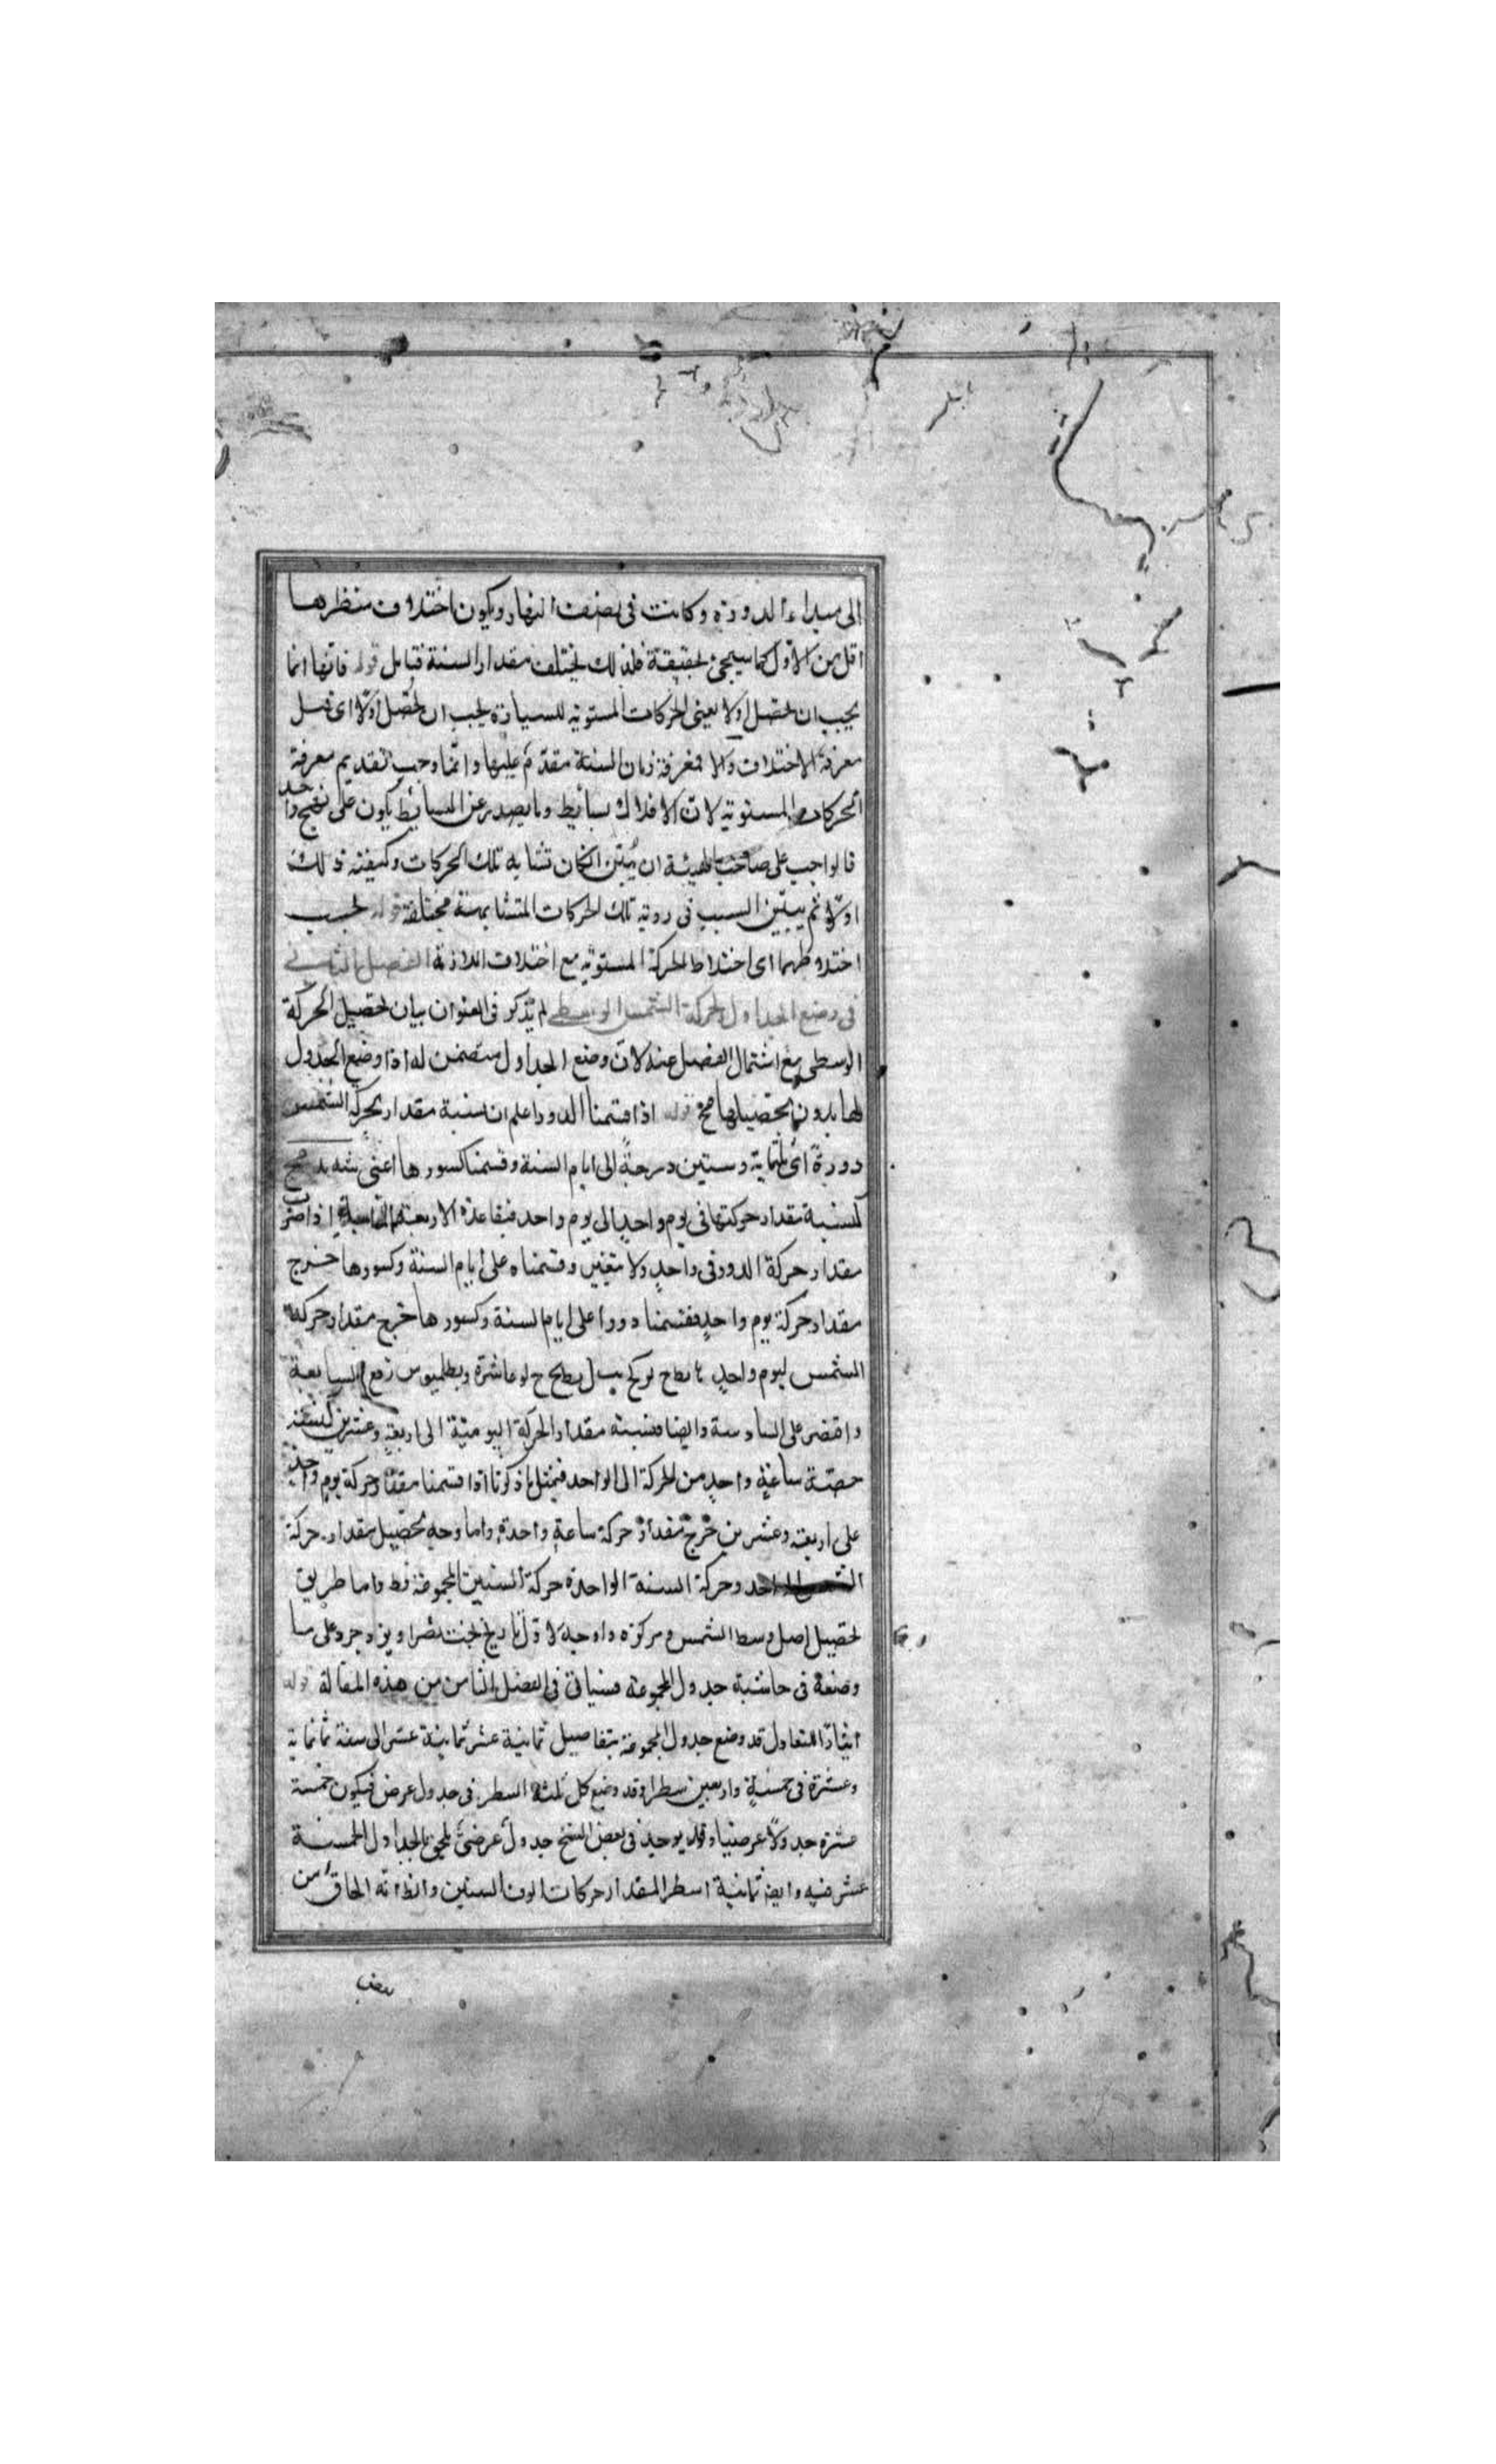 الى مبداء الدورة وكانت فى نصف النهار ويكون اختلاف منظرها
اقل من الاول كما سيجئ تحقيقه فلذلك يختلف مقدار السنة فتأمل قوله فانها انما
يجب ان تحصل اولا يعنى الحركات المستوية للسيارة يجب ان تحصل اولا اى قبل
معرفة الاختلاف والا فمعرفة زمان السنة مقدم عليها وانما وجب تقديم معرفة
الحركات المستوية لان الافلاك بسائط وما يصدر عن البسائط يكون على نهج واحد
فالواجب على صاحب الهيئة ان يبين اثبات تشابه تلك الحركات وكيفية ذلك
اولا ثم يبين السبب فى روية تلك الحركات المتشابهة مختلفة قوله بحسب
اختلاطهما اى اختلاط الحركة المستوية مع اختلاف اللازمة الفصل الثانى
فى وضع الجداول لحركة الشمس الوسطى لم يذكر فى العنوان بيان تحصيل الحركة
الوسطى مع اشتمال الفصل عنه لان وضع الجداول متضمن له اذ وضع الجدول
لها بدون تحصيلها مح قوله اذا قسمنا الدور اعلم ان نسبة مقدار حركة الشمس
دورة اى ثلثماية وستين درجة الى ايام السنة وقسمنا كسورها اعنى شسه يد مح
كنسبة مقدار حركتها فى يوم واحد الى يوم واحد فبقاعدة الاربعة المتناسبة اذا ضرب
مقدار حركة الدور فى واحد ولا يتغير وقسمناه على ايام السنة وكسورها خرج
مقدار حركة يوم واحد فقسمنا دورا على ايام السنة وكسورها خرج مقدار حركة
الشمس ليوم واحد عاشرة وبطلميوس رفع السابعة
واقتصر على السادسة وايضا فنسبة مقدار الحركة اليومية الى اربعة وعشرين كنسبة
حصة ساعة واحد من الحركة الى الواحد فبمثل ما ذكرنا اذا قسمنا مقدار حركة يوم واحد
على اربعة وعشرين خرج مقدار حركة ساعة واحدة واما وجه تحصيل مقدار حركة
وحركة السنة الواحدة حركة السنين المجموعة فظ واما طريق
تحصيل اصل وسط الشمس ومركزه واوجه لاول تاريخ بخت نصر او يزدجرد على ما
وضعه فى حاشية جدول المجموعة فسياتى فى الفصل الثامن من هذه المقالة قوله
قد وضع جدول المجموعة بتفاصيل ثمانية عشر ثمانية عشر الى سنة ثمانماية
وعشرة فى خمسة واربعين سطرا وقد وضع كل ثلثة اسطر فى جدول عرضى فيكون خمسة
عشرة جدولا عرضيا وقد يوجد فى بعض النسخ جدول عرضى يلحق بالجداول الخمسة
عشر فيه وايضا ثمانية اسطر لمقدار حركات الوف السنين والظ انه الحاق من
بعض